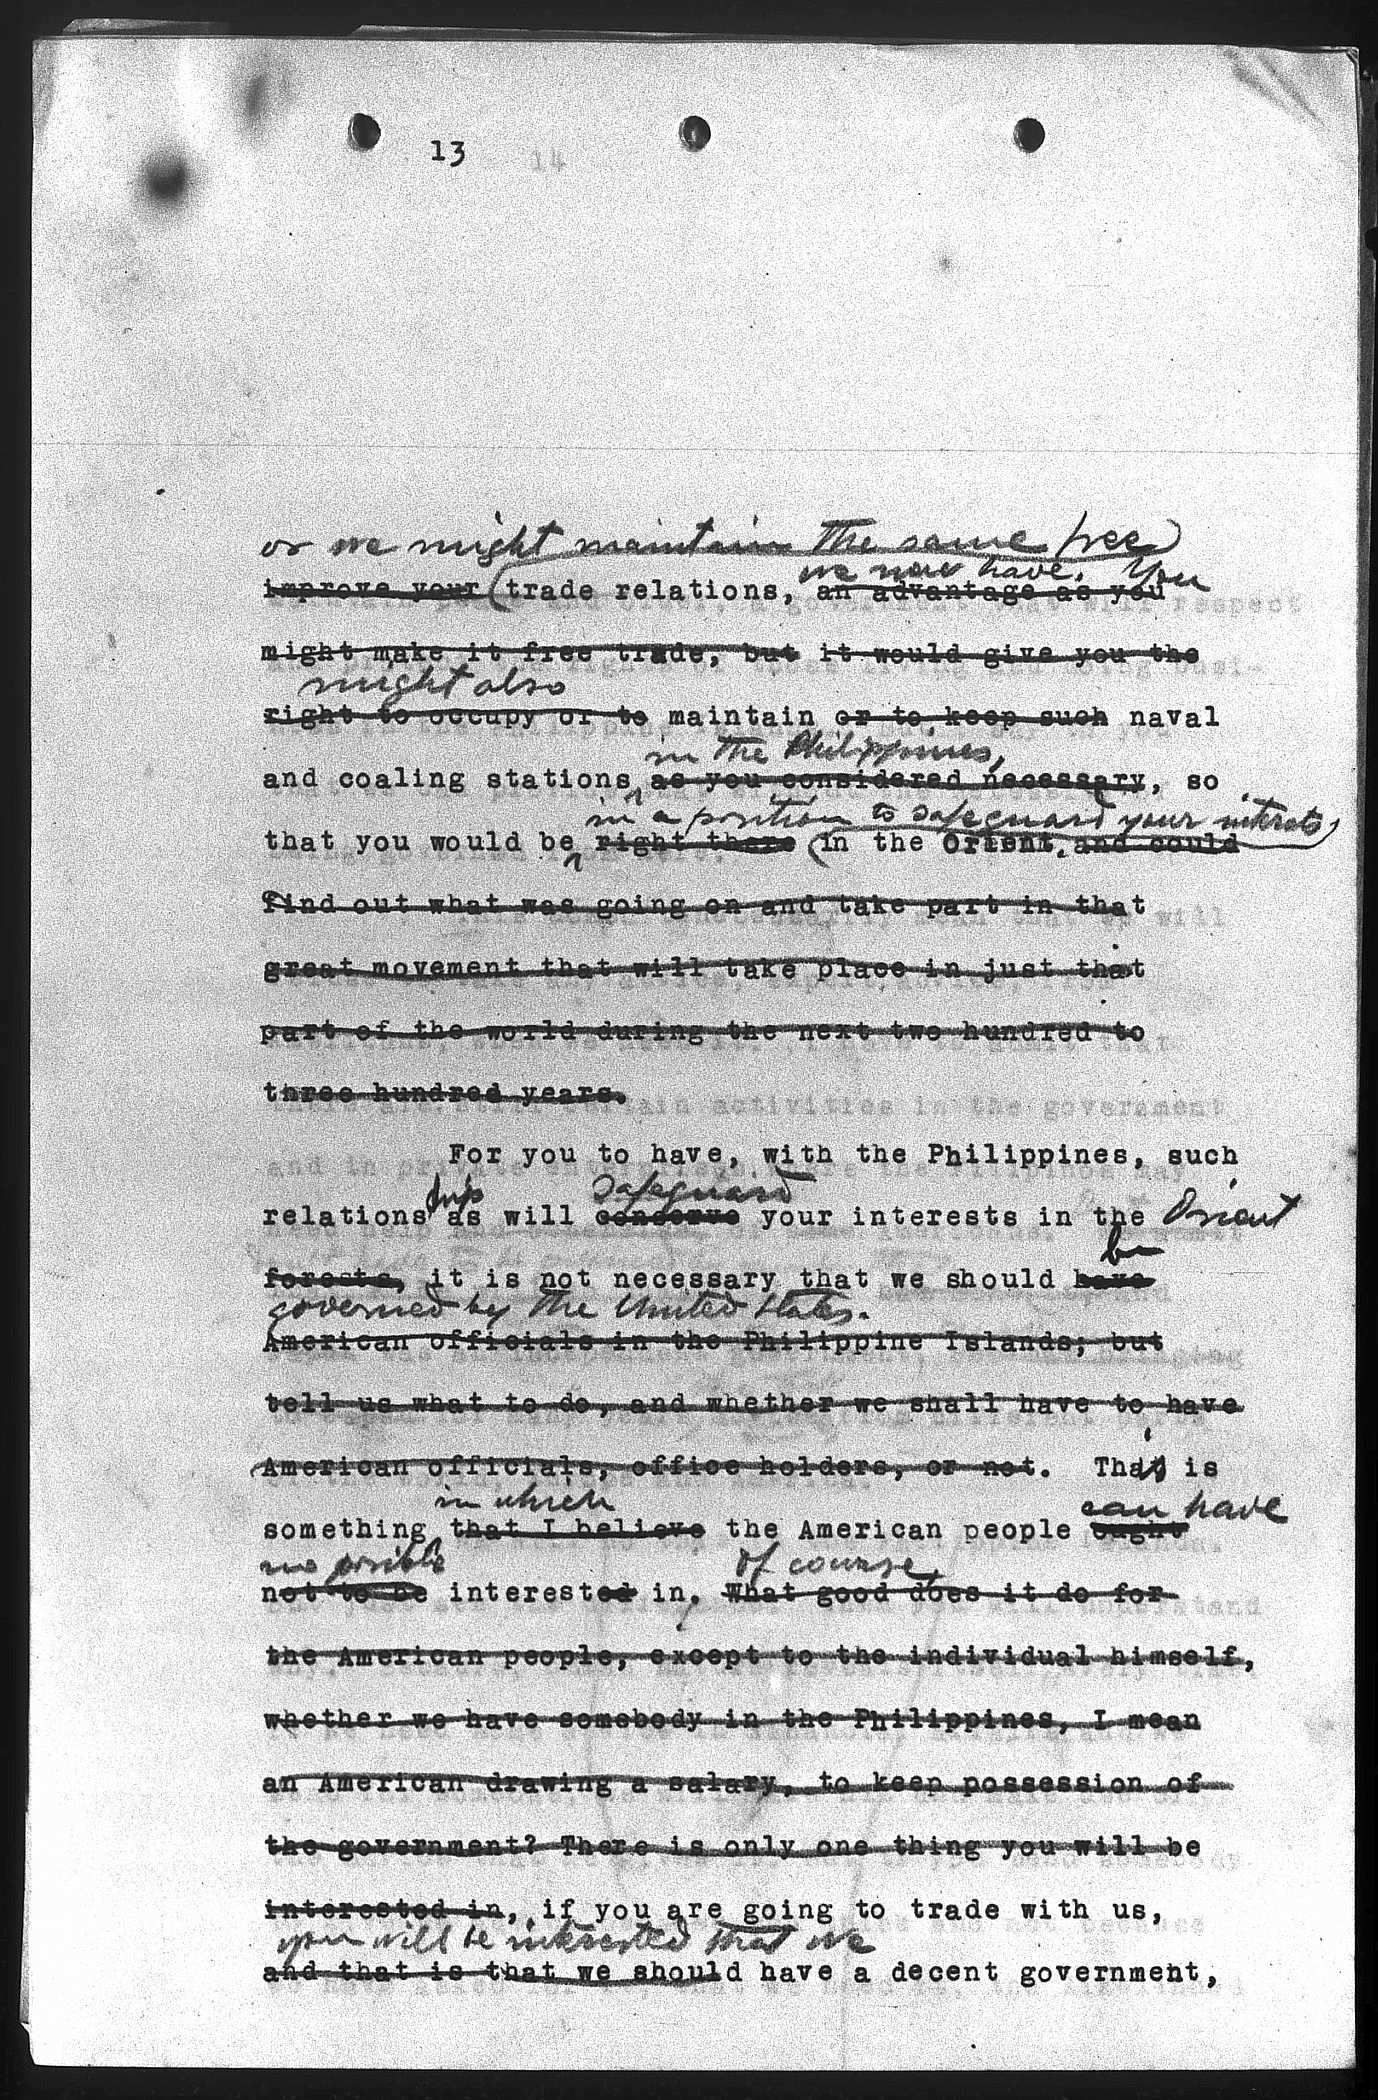 13 14
or we might maintain the same free
we now have. You
improve your (trade relations, an advantage as you
might make it free trade, but it would give you the
might also
right to occupy or to maintain or to keep such naval
in the Philippines,
and coaling stations, as you considered necessary, so
in a position to safeguard your interests
that you would be right there in the Orient, and could
find out what was going on and take part in that
great movement that will take place in just that
part of the world during the next two hundred to
three hundred years.
For you to have, with the Philippines, such
ship safeguard
relations as will conserve your interests in the Orient
be
forests, it is not necessary that we should have
governed by the United States.
American officials in the Philippine Islands; but
tell us what to do, and whether we shall have to have
American officials, office holders, or not. That is
in which can have
something that I believe the American people ought
no possible of course,
not to be interested in. What good does it do for
the American people, except to the individual himself,
whether we have somebody in the Philippines, I mean
an American drawing a salary, to keep possession of
the government? There is only one thing you will be
interested in, if you are going to trade with us,
you will be interested that we
and that is that we should have a decent government,